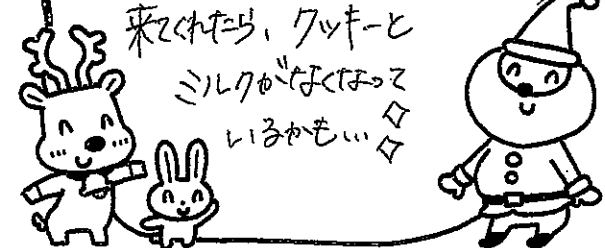 来てくれたら、クッキーと
ミルクがなくなって
いるかも…